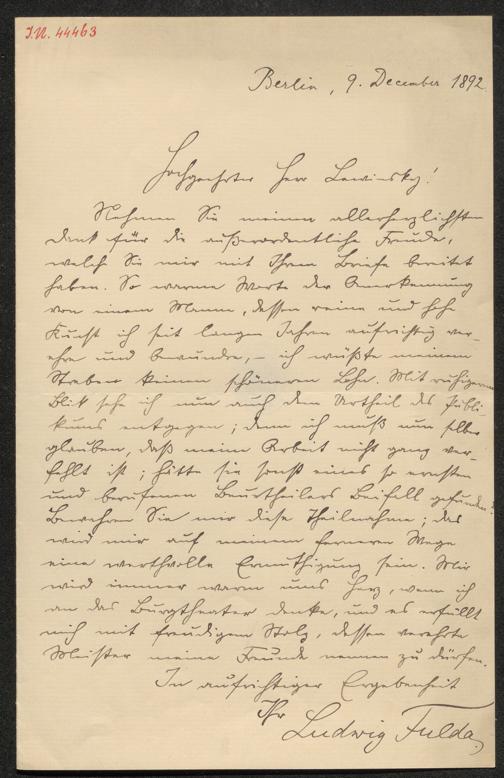 I.N. 44463
Berlin, 9. December 1892.
Hochgeehrter Herr Lewinsky!
Nehmen Sie meinen allerherzlichsten
Dank für die außerordentliche Freude,
welche Sie mir mit Ihrem Briefe bereitet
haben. So warme Worte der Anerkennung
von einem Manne, dessen reine und hohe
Kunst ich seit langen Jahren aufrichtig ver-
ehre und bewundre, – ich wüßte meinem
Streben keinen schöneren Lohn. Mit ruhigerem
Blick sehe ich nun auch dem Urtheil des Publi-
kums entgegen; denn ich muß nun selber
glauben, daß meine Arbeit nicht ganz ver-
fehlt ist; hätte sie sonst eines so ernsten
und berufenen Beurtheilers Beifall gefunden?
Bewahren Sie mir diese Theilnahme; das
wird mir auf meinem ferneren Wege
eine werthvolle Ermuthigung sein. Mir
wird immer warm ums Herz, wenn ich
an das Burgtheater denke, und es erfüllt
mich mit freudigem Stolz, dessen verehrte
Meister meine Freunde nennen zu dürfen.
In aufrichtiger Ergebenheit
Ihr
Ludwig Fulda